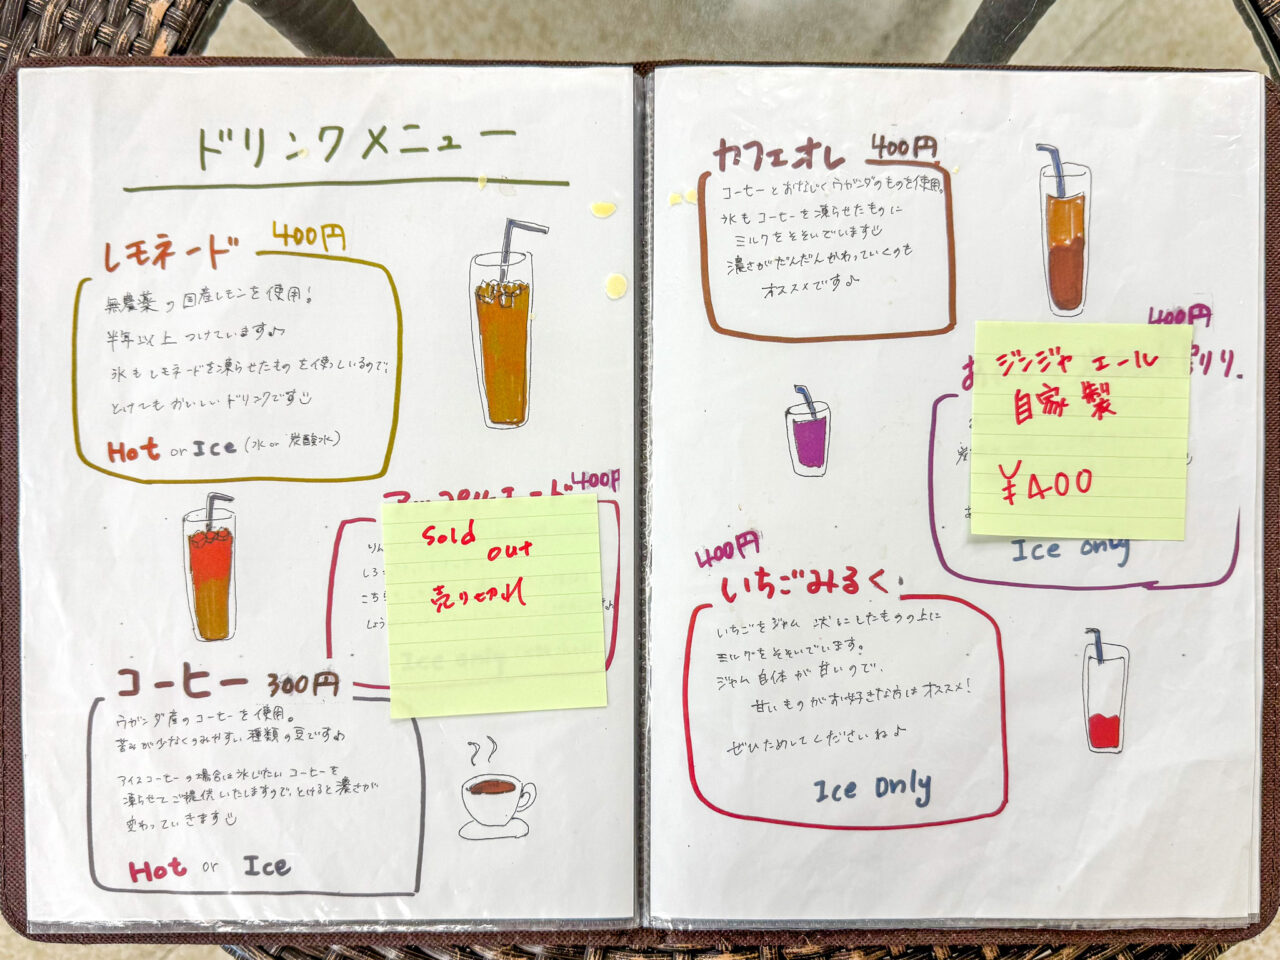 ドリンクメニュー
レモネード 400円
無農薬の国産レモンを使用！
半年以上つけています♪
氷もレモネードを凍らせたものを使っているので、
とけてもおいしいドリンクです
Hot or Ice (水 or 炭酸水)
400円
Sold
out
売り切れ
りん
しろ
こちら
しょう
Ice only
コーヒー 300円
ウガンダ産のコーヒーを使用。
苦みが少なくのみやすい種類の豆です♪
アイスコーヒーの場合は氷じたいコーヒーを
凍らせてご提供いたしますので、とけると濃さが
変わっていきます
Hot or Ice
カフェオレ 400円
コーヒーとおなじくウガンダのものを使用。
氷もコーヒーを凍らせたものに
ミルクをそそいでいます
濃さがだんだんかわっていくのも
オススメです♪
400円
ジンジャエール
自家製
¥400
Ice only
400円
いちごみるく
いちごをジャム状にしたものの上に
ミルクをそそいでいます。
ジャム自体が甘いので、
甘いものがお好きな方はオススメ！
ぜひためしてくださいね♪
Ice only